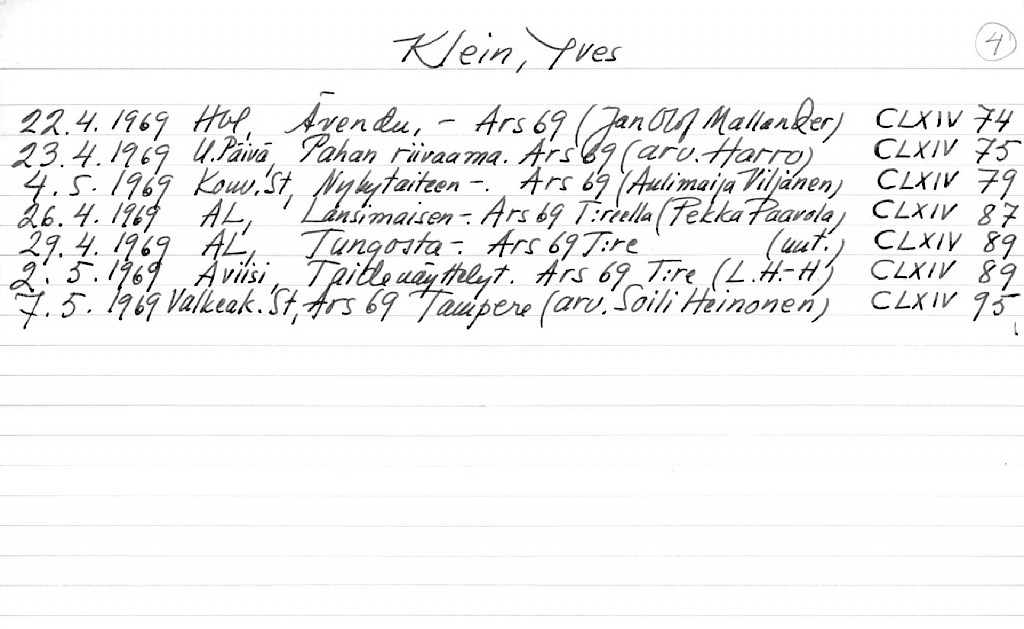 Klein, Yves
4
22.4.1969 Hbl, Även du, - Ars 69 (Jan Olof Mallander) CLXIV 74
23.4.1969 U.Päivä, Pahan riivaama. Ars 69 (arv. Harro) CLXIV 75
4.5.1969 Kouv.St, Nykytaiteen -. Ars 69 (Aulimaija Viljanen) CLXIV 79
26.4.1969 AL, Länsimaisen -. Ars 69 T:reella (Pekka Paavola) CLXIV 87
29.4.1969 AL, Tungosta -. Ars 69 T:re (uut.) CLXIV 89
2.5.1969 Aviisi, Taidenäyttelyt. Ars 69 T:re (L.H.-H) CLXIV 89
7.5.1969 Valkeak.St, Ars 69 Tampere (arv. Soili Heinonen) CLXIV 95